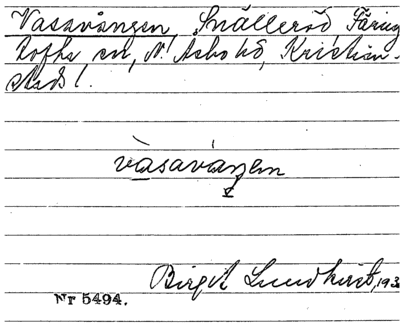 Vasavången, Snälleröd, Färing
tofta sn, N. Åsbo hd, Kristian-
stads l.
vàsavàŋen
v
Birgit Lundkvist, 193
Nr 5494.